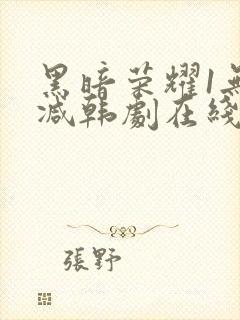 黑暗荣耀1無
减韩劇在綫
張野